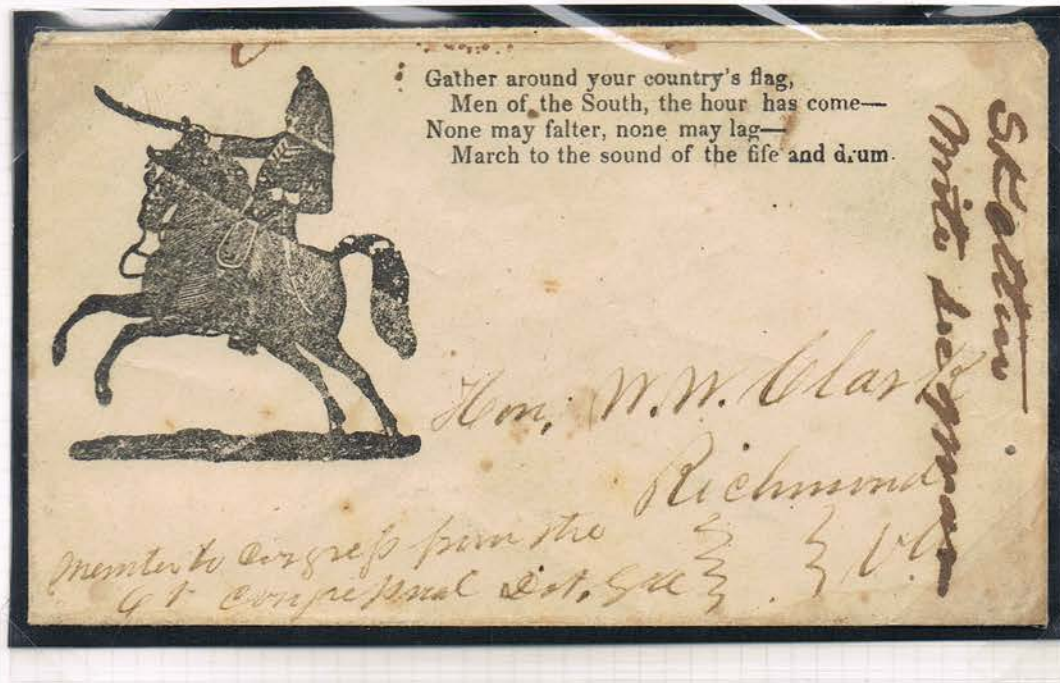 Gather around your country's flag,
Men of the South, the hour has come—
None may falter, none may lag—
March to the sound of the fife and drum.
Hon, W. W. Clark
Richmond
Va
Member to Congress from the
Congressional Dist.